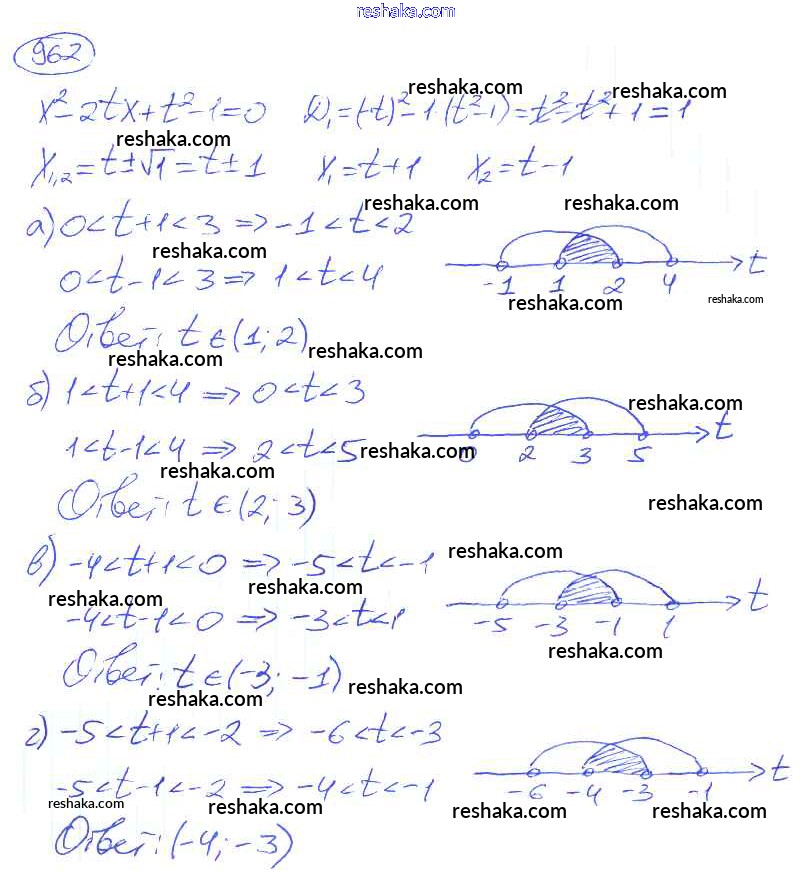 reshaka.com
962
x²-2tx+t²-1=0 D₁=(-t)²-1·(t²-1)=t²-t²+1=1
reshaka.com reshaka.com
reshaka.com
x₁,₂=t±√1=t±1 x₁=t+1 x₂=t-1
reshaka.com reshaka.com
а) 0<t+1<3 => -1<t<2
reshaka.com
0<t-1<3 => 1<t<4
-1 1 2 4 t
reshaka.com reshaka.com
Ответ: t∈(1; 2)
reshaka.com reshaka.com
б) 1<t+1<4 => 0<t<3
reshaka.com
1<t-1<4 => 2<t<5
0 2 3 5 t
reshaka.com reshaka.com
Ответ: t∈(2; 3)
reshaka.com
в) -4<t+1<0 => -5<t<-1
reshaka.com
reshaka.com reshaka.com
-4<t-1<0 => -3<t<1
-5 -3 -1 1 t
reshaka.com
Ответ: t∈(-3; -1)
reshaka.com reshaka.com
г) -5<t+1<-2 => -6<t<-3
-5<t-1<-2 => -4<t<-1
-6 -4 -3 -1 t
reshaka.com reshaka.com reshaka.com reshaka.com
Ответ: (-4; -3)